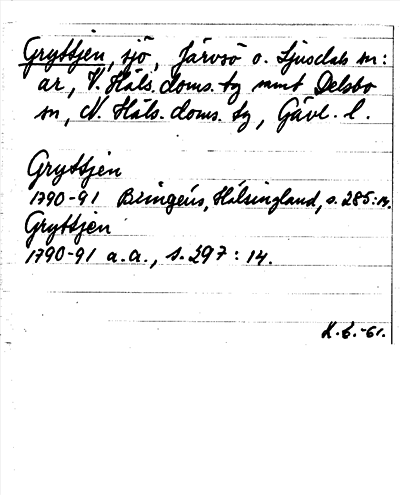 Gryttjen, sjö, Järvsö o. Ljusdals sn:
ar, V. Häls. doms. tg samt Delsbo
sn, N. Häls. doms. tg, Gävl. l.
Gryttjen
1790-91 Bringéus, Hälsingland, s. 285:14.
Gryttjen
1790-91 a.a., s. 297:14.
K.G.-61.